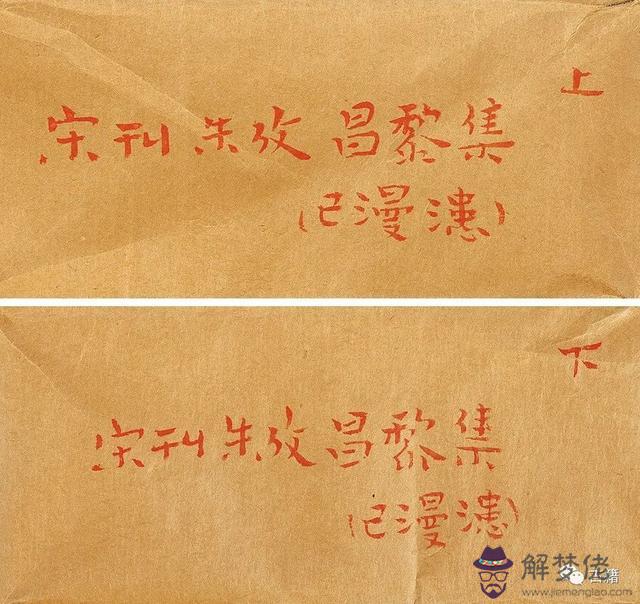 上
宋刊朱攷昌黎集
(已漫漶)
下
宋刊朱攷昌黎集
(已漫漶)
古籍
解梦佬
www.jiemenglao.com